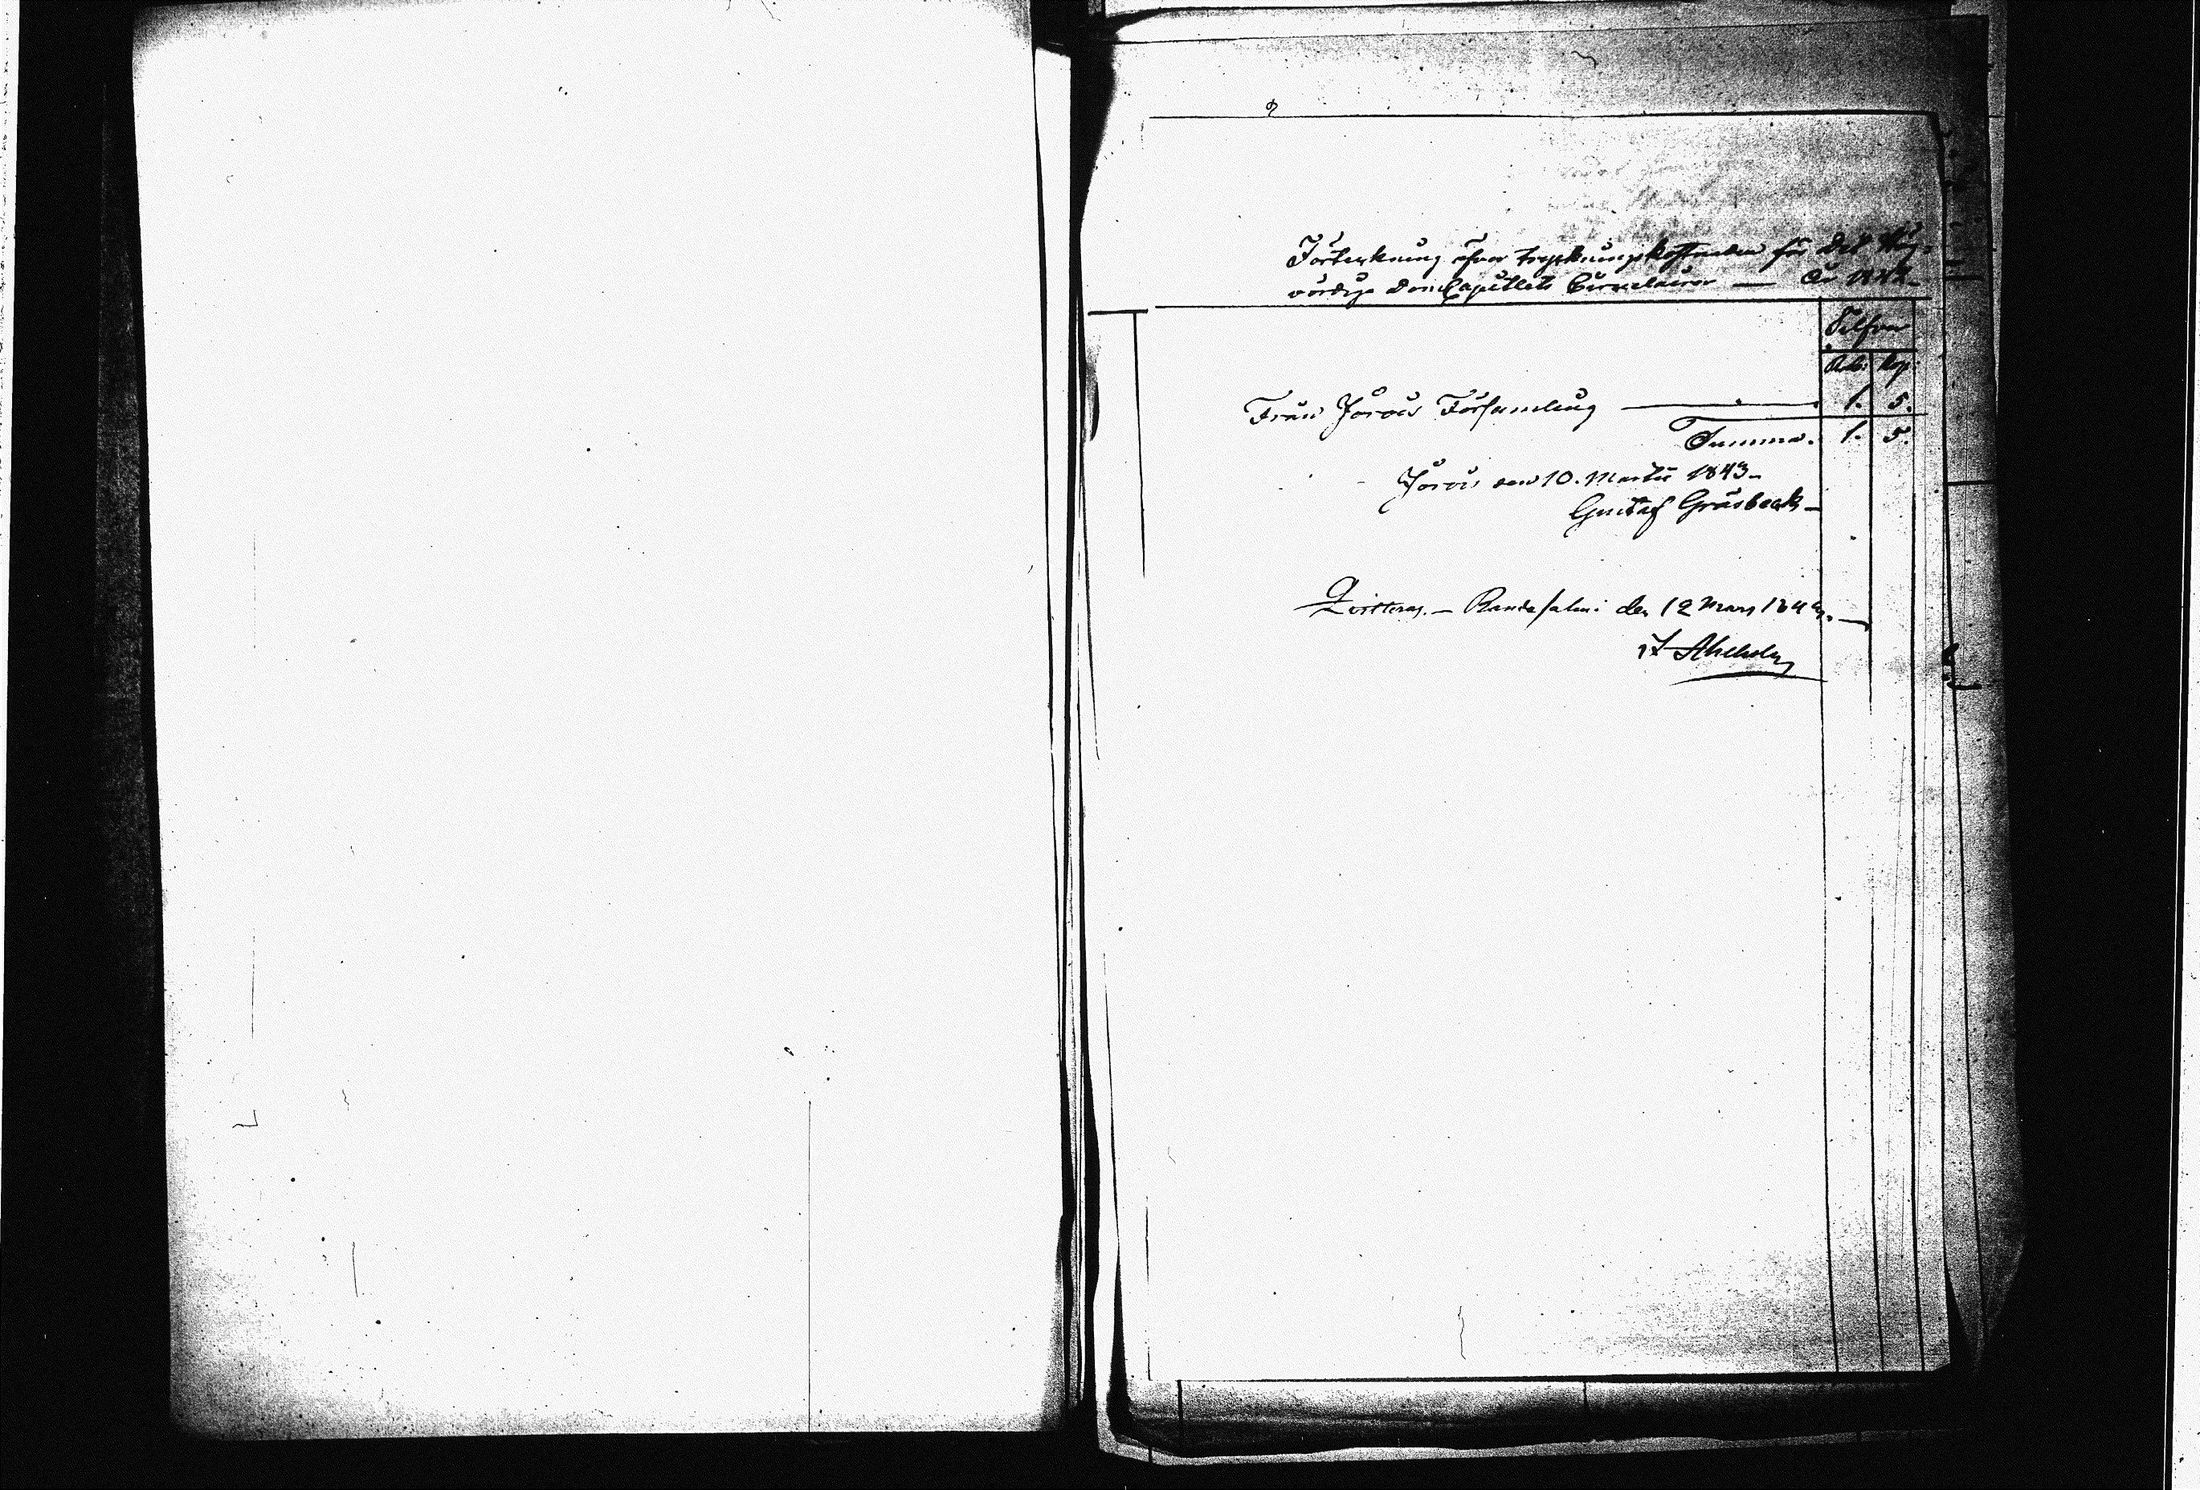 Förteckning öfver tryckningskostnaden för Det Hög-
vördige DomCapitlets Circulairer — År 1842.
Silfver
Rub: Kop:
Från Jorois Församling — 1. 5.
Summa. 1. 5.
Jorois den 10. Martii 1843.
Gustaf Gråsbeck
Qvitteras. — Randasalmi den 12 Mars 1843.